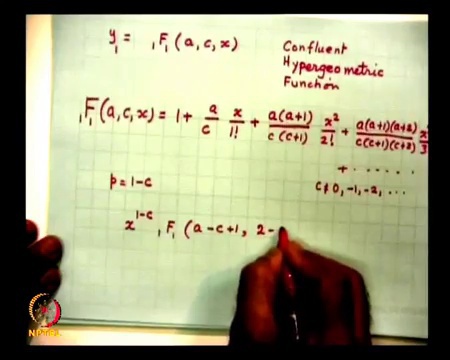 y₁ = ₁F₁(a, c, x)
Confluent
Hypergeometric
Function
₁F₁(a, c, x) = 1 + a/c x/1! + a(a+1)/c(c+1) x²/2! + a(a+1)(a+2)/c(c+1)(c+2) x³/3
+ . . . . . .
c ≠ 0, -1, -2, ...
p = 1-c
x^{1-c} ₁F₁(a-c+1, 2-
NPTEL